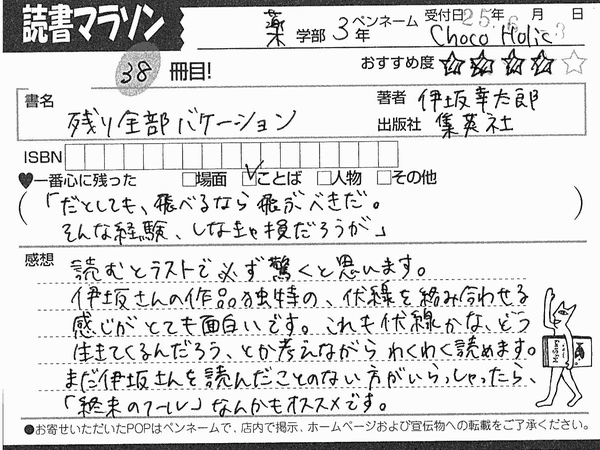 読書マラソン
薬 学部 3年 ペンネーム Choco Holic 受付日 25年 6月 3日
38 冊目! おすすめ度 ★★★★☆
書名 残り全部バケーション
著者 伊坂幸太郎
出版社 集英社
ISBN
♥一番心に残った □場面 ☑ことば □人物 □その他
(「だとしても、飛べるなら飛ぶべきだ。
そんな経験、しなきゃ損だろうが」)
感想 読むとラストで必ず驚くと思います。
伊坂さんの作品独特の、伏線を絡み合わせる
感じがとても面白いです。これも伏線かな、どう
生きてくるんだろう、とか考えながらわくわく読めます。
まだ伊坂さんを読んだことのない方がいらっしゃったら、
「終末のフール」なんかもオススメです。
●お寄せいただいたPOPはペンネームで、店内で掲示、ホームページおよび宣伝物への転載をご了承ください。